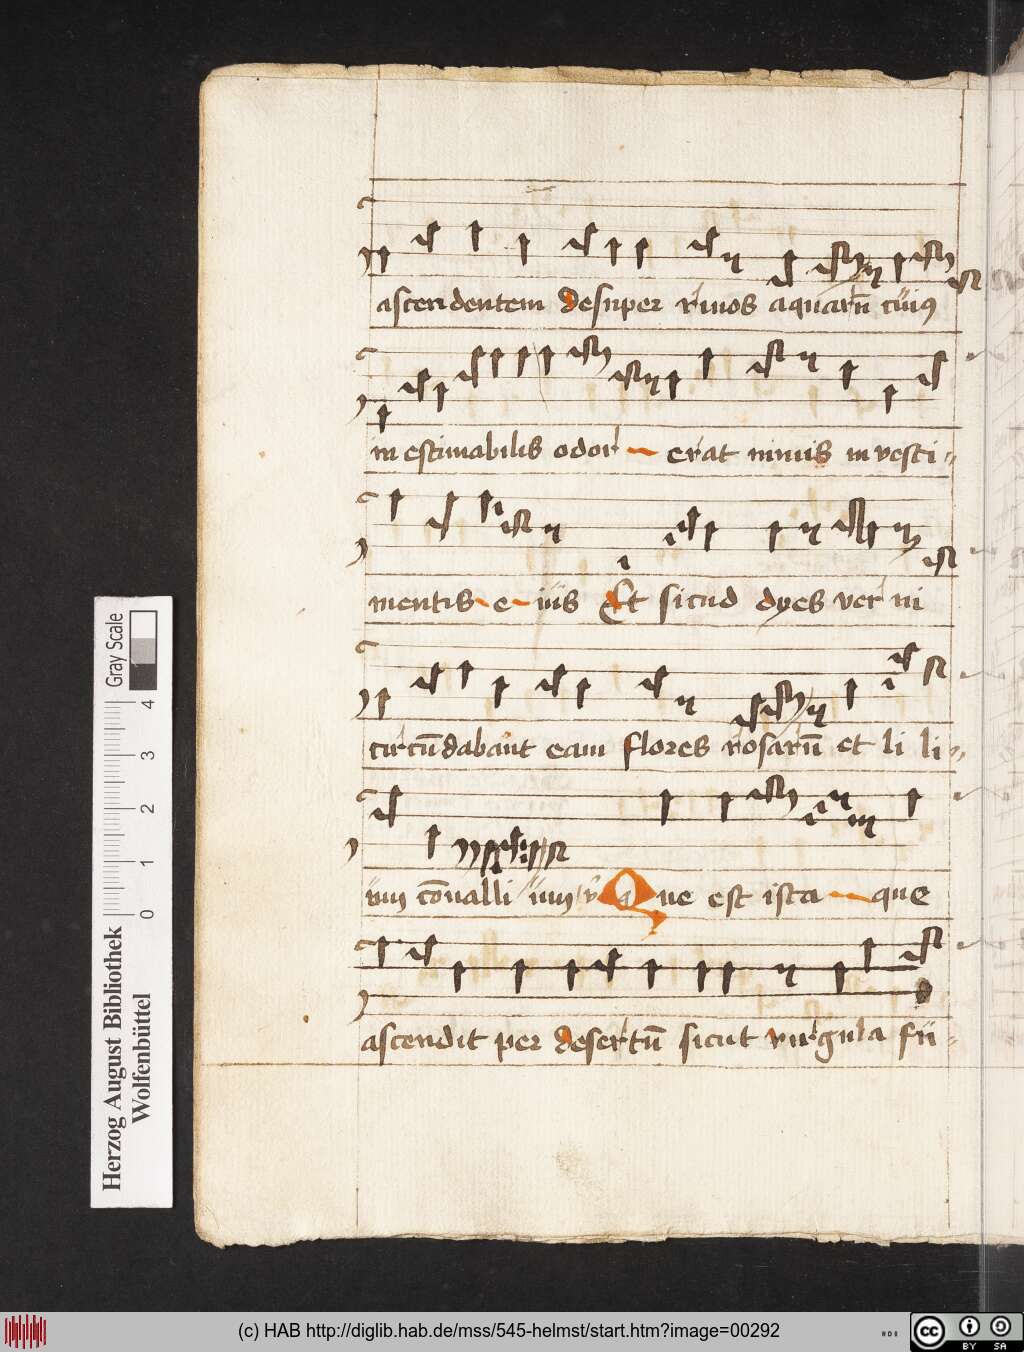 ascendentem desuper riuos aquarū cuius
in estimabilis odor erat nimis in vesti
mentis e ius Et sicud dyes ver ni
circūdabant eam flores rosarū et li li
um cōualli um Que est ista que
ascendit per desertū sicut virgula fu
Gray Scale
4
3
2
1
0
Herzog August Bibliothek
Wolfenbüttel
(c) HAB http://diglib.hab.de/mss/545-helmst/start.htm?image=00292
cc BY SA